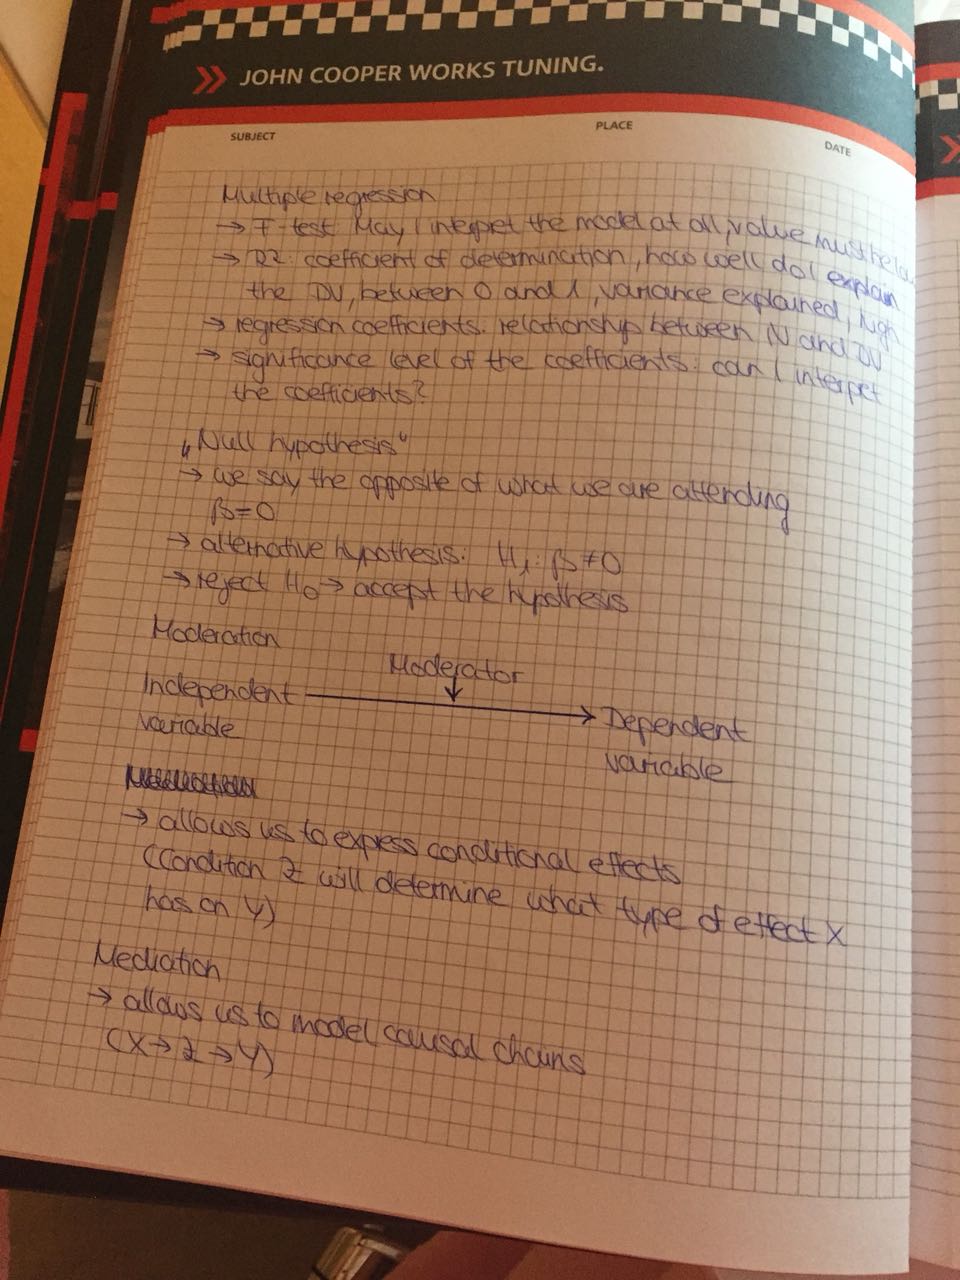 JOHN COOPER WORKS TUNING.
SUBJECT
PLACE
DATE
Multiple regression
→ F-test: May I interpret the model at all, value must be
→ R2: coefficient of determination, how well do I explain
the DV, between 0 and 1, variance explained, high
→ regression coefficients: relationship between IV and DV
→ significance level of the coefficients: can I interpret
the coefficients?
„Null hypothesis“
→ we say the opposite of what we are attending
β=0
→ alternative hypothesis: H1: β≠0
→ reject H0 → accept the hypothesis
Moderation
Moderator
Independent
variable
Dependent
variable
→ allows us to express conditional effects
(Condition Z will determine what type of effect X
has on Y)
Mediation
→ allows us to model causal chains
(X→Z→Y)